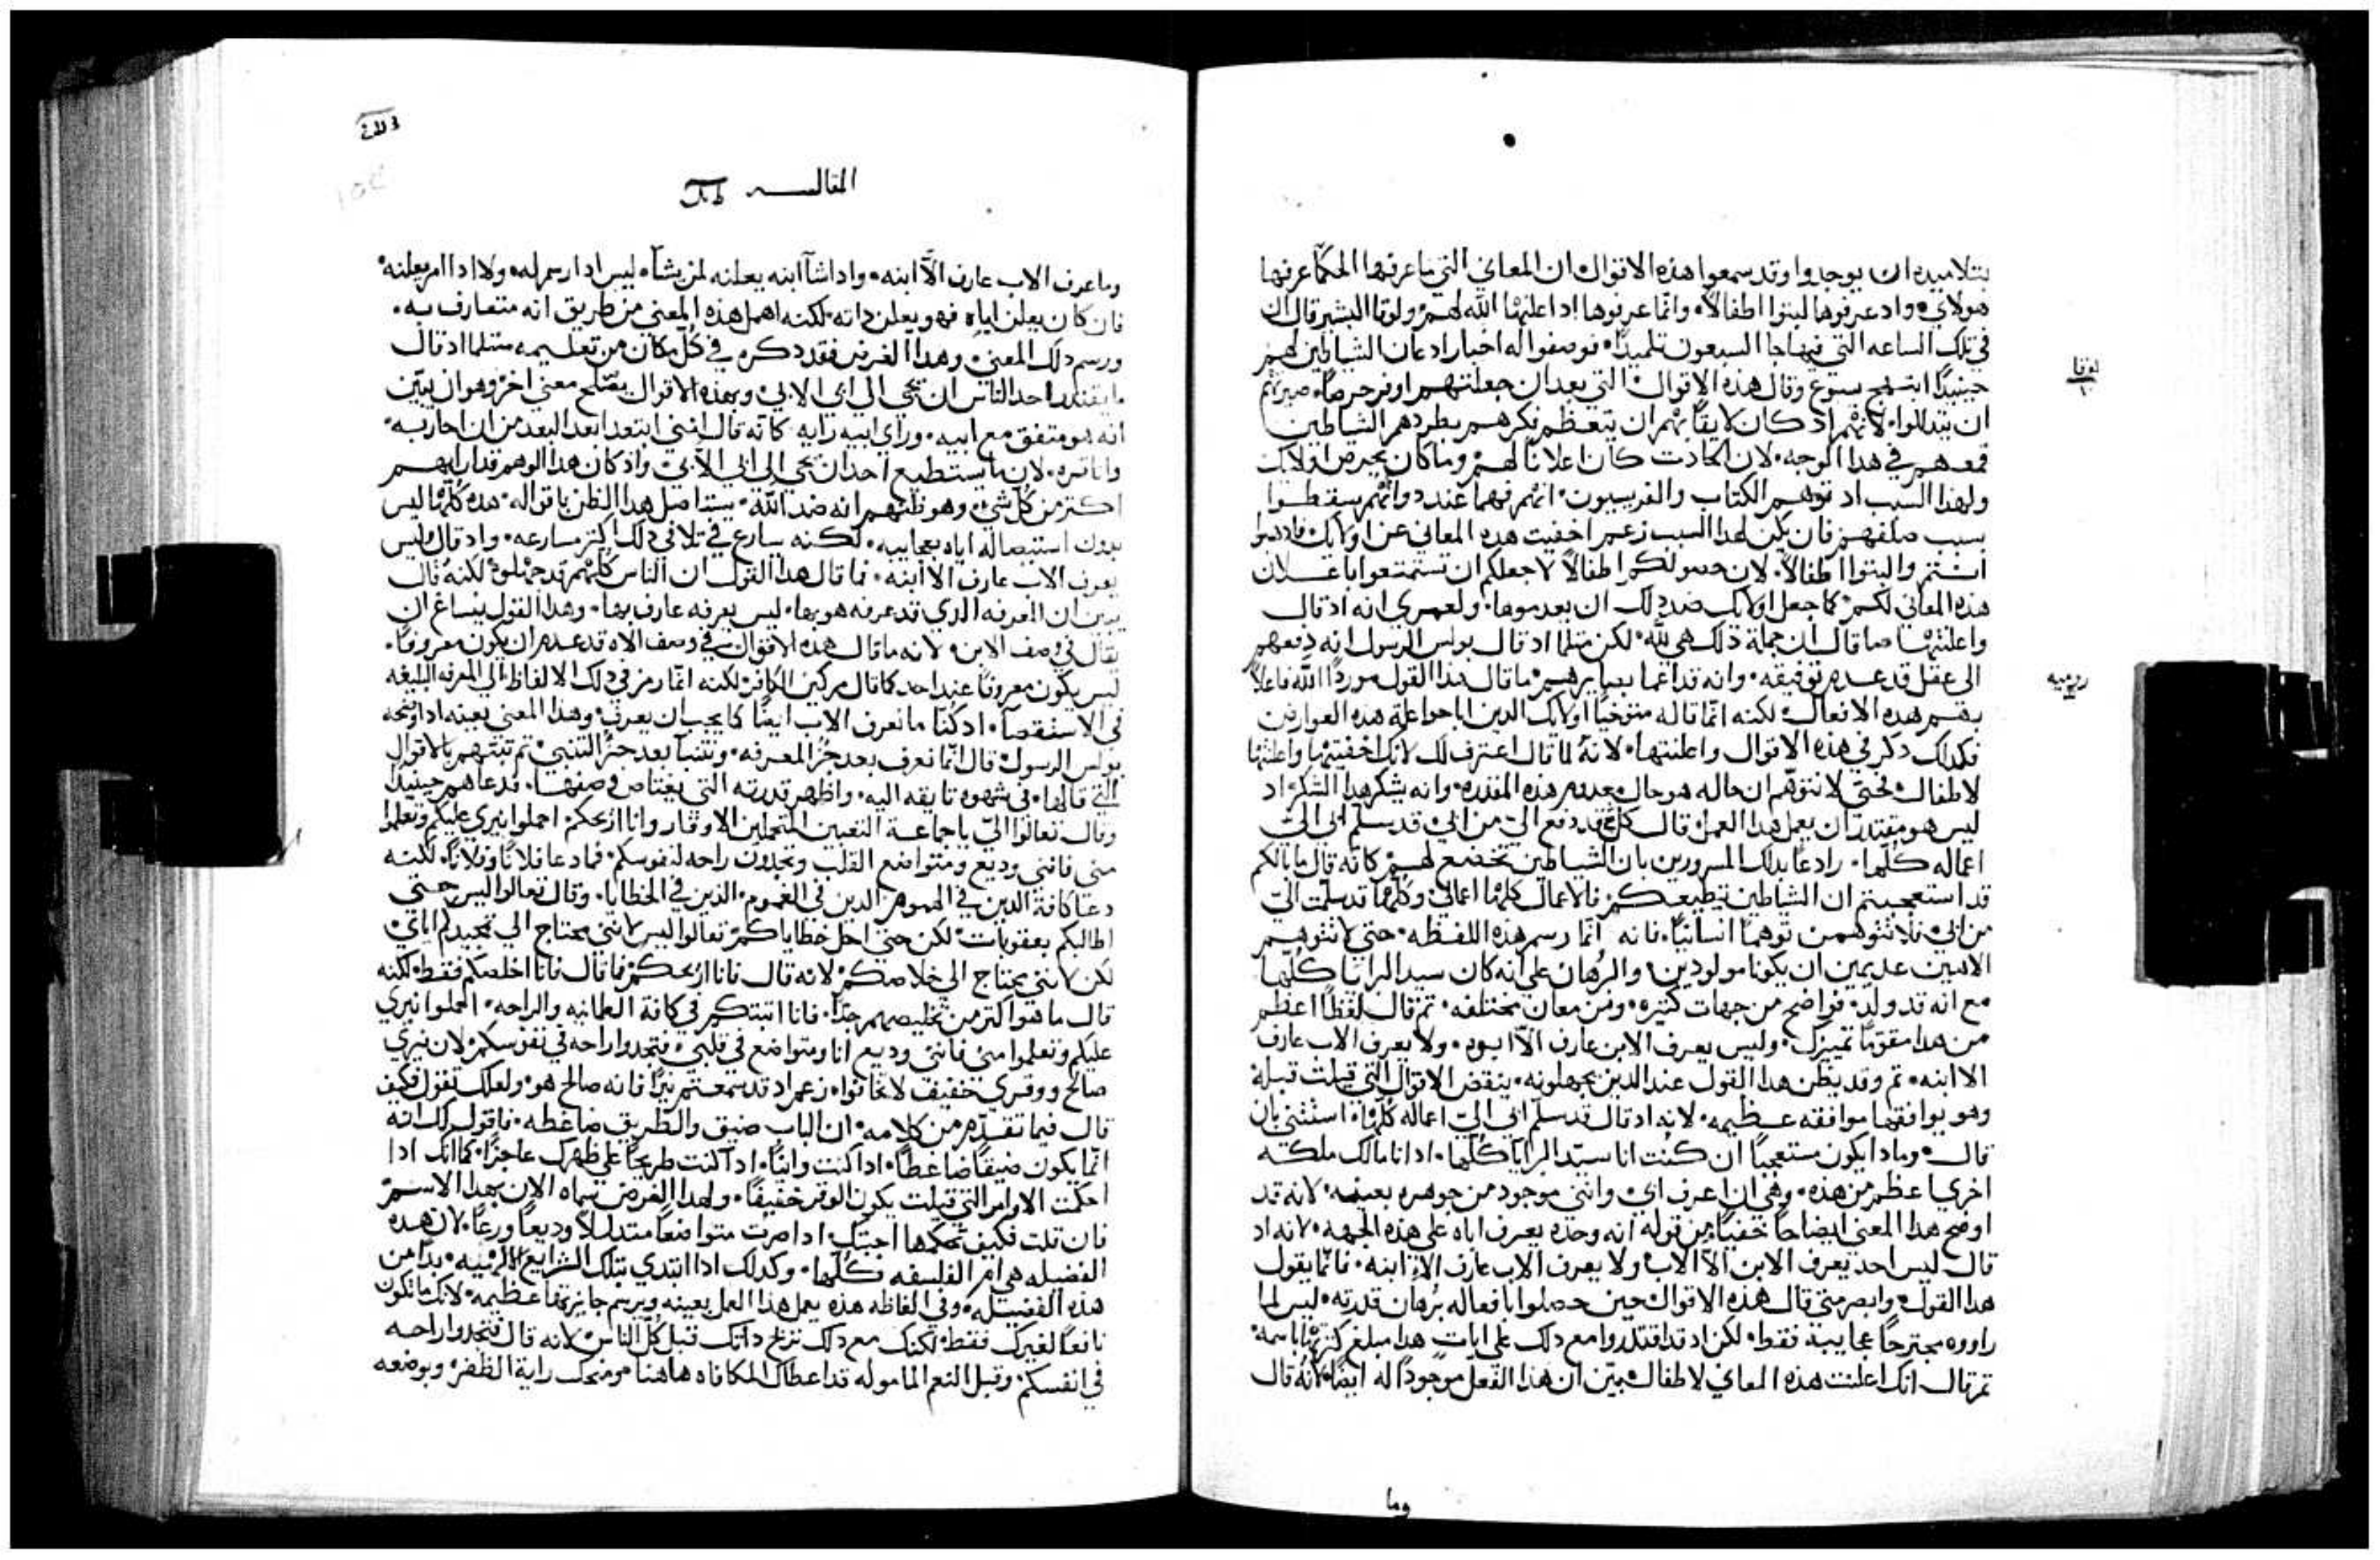 بتلاميده ان يوجدوا وقد سمعوا هذه الاقوال ان المعاني التي ما عرفها الحكما عرفها
هولاي واد عرفوها لبتوا اطفالاً وانما عرفوها اد اعلنها الله لهم ولوقا البشير قال ان
في تلك الساعه التي فيها جا السبعون تلميدًا فوصفوا له اخبار ادعان الشياطين لهم
لوقا
حينيدًا ابتهج يسوع وقال هذه الاقوال التي بعد ان جعلتهم اوفر حرصًا صيرتهم
ان يتدللوا لانهم اد كان لايقًا بهم ان يتعظم فكرهم بطردهم الشياطين
قمعهم في هدا الوجه لان الحادت كان اعلانًا لهم وما كان
ولهذا السبب اد توهم الكتاب والفريسيون انهم فهما عند دواتهم سقطوا
بسبب صلفهم فان يكن لهدا السبب زعم اخفيت هده المعاني عن اولايك
انتم والبتوا اطفالاً لان لكم اطفالاً لا جعلكم ان تستمتعوا باعلان
هذه المعاني لكم كما جعل اولايك ضد دلك ان يعدموها ولعمري انه اد قال
واعلنتها ما قال ان جملة ذلك هي لله لكن متلما اد قال بولس الرسول انه دفعهم
رومية
الى عقل قد عدم توفيقه وانه قد اعما بصايرهم ما قال هدا القول موردًا الله فاعلاً
بهم هده الافعال لكنه انما قاله اولايك الدين اباحوا علة هده العوارض
فكدلك دكر في هذه الاقوال واعلنتها لانه لما قال اعترف لك لانك اخفيتها واعلنتها
لاطفال لحتي لا نتوهم ان حاله هو حال هذه المقدره وانه يشكر هدا الشكر اد
ليس هو مقتدرًا ان يعمل هدا العمل قال كل قد دفع الي من ابي قد سلم ابي الي
اعماله كلها رادعًا بدلك المسرورين بان الشياطين تخضع لهم كانه قال ما بالكم
قد استعجبتم ان الشياطين تطيعكم فالاعمال كلها اعمالي وكلها قد سلمت الي
من ابي فلا تتوهمن توهمًا انسانيًا فانه انما رسم هذه اللفظه حتي لا تتوهم
الاهين عديمين ان يكونا مولودين والبرهان على انه كان سيد البرايا كلها
مع انه قد ولد فواضح من جهات كتيره ومن معان مختلفه تم قال لفظًا اعظم
من هدا مقومًا تمييزك وليس يعرف الابن عارف الا ابوه ولا يعرف الاب عارف
الا ابنه تم وقد يظن هدا القول عند الدين يجهلونه ينقض الاقوال التي قيلت قبله
وهو يوافقها موافقه عظيمه لانه اد قال قد سلم ابي الي اعماله كلها استتني بان
قال وما دا يكون مستعجبًا ان كنت انا سيد البرايا كلها اد انا مالك ملكه
اخري اعظم من هذه وهي ان اعرف ابي وانني موجود من جوهره بعينه لانه قد
اوضح هدا المعني ايضاحًا خفيًا من قوله انه وحده يعرف اباه على هذه الجهه لانه اد
قال ليس احد يعرف الابن الا الاب ولا يعرف الاب عارف الا ابنه فانما يقول
هدا القول وابصر متي قال هذه الاقوال حين حصلوا بافعاله برهان قدرته ليس لما
راووه مجترحًا عجايبه فقط لكن اد قد اقتدروا مع دلك على ايات هدا مبلغ كترتها باسمه
تم قال انك اعلنت هده المعاني لاطفال يبين ان هذا الفعل موجودًا له ايضًا لانه قال
وما
المقالـــه
وما عرف الاب عارف الا ابنه وادا شا ابنه يعلنه لمن يشاء ليس ادا رسم له ولا ادا امر يعلنه
فان كان يعلن اياه فهو يعلن داته لكنه اهمل هذه المعني من طريق انه متعارف به
ورسم دلك المعني وهدا الغرض فقد دكره في كل مكان من تعليمه متلما اد قال
ما يقتدر احد الناس ان يجي الي ابي الا بي وبهده الاقوال يصلح معني اخر وهو ان يبين
انه هو متفق مع ابيه وراي ابيه رايه كانه قال انني ابتعد ابعد البعد من ان احاربه
لان ما يستطيع احد ان يجي الي ابي الا بي واد كان هدا الوهم قد
اكتر من كل شيء وهو ظنهم انه ضد الله يستاصل هدا الظن باقواله هذه كلها ليس
بدون استيصاله اياه بعجايبه لكنه يسارع في تلافي دلك اكتر مسارعه واد قال وليس
يعرف الاب عارف الا ابنه فما قال هدا القول ان الناس كلهم قد جهلوه لكنه قال
ان المعرفه الدي قد عرفه هو بها ليس يعرفه عارف بها وهدا القول ينساغ ان
يقال في وصف الابن لانه ما قال هده الاقوال في وصف الاه قد عدم ان يكون معروفًا
ليس يكون معروفًا عند احد كما قال مركين الكافر لكنه انما رمز في دلك الالفاظ الي المعرفه البليغه
في الاستقصآ اد كنا ما نعرف الاب ايضًا كما يجب ان يعرف وهدا المعني بعينه ادا اوضحه
بولس الرسول قال انما نعرف بعد جز المعرفه ونتنبا بعد جز التنبي تم تنتهم بالاقوال
التي قالها في شهوه تايقه اليه واظهر قدرته التي يعتاص وصفها فدعاهم حينيدًا
وقال تعالوا الي يا جماعة التعبين المتحملين الاوقار وانا اريحكم احملوا نيري عليكم وتعلموا
مني فانني وديع ومتواضع القلب وتجدون راحه لنفوسكم فما دعا فلانًا وفلانًا لكنه
دعا كافة الدين في الهموم الدين في الغموم الدين في الخطايا وقال تعالوا ليس حتي
اطالبكم بعقوبات لكن حتي احل خطاياكم تعالوا ليس لانني محتاج الي تمجيدكم اياي
لكن لانني محتاج الي خلاصكم لانه قال فانا اريحكم فما قال فانا اخلصكم فقط لكنه
قال ما هو اكتر من تخليصهم جدًا فانا اتبتكم في كافة الطمانيه والراحه احملوا نيري
عليكم وتعلموا مني فانني وديع انا ومتواضع في قلبي فتجدوا راحه في نفوسكم لان نيري
صالح ووقري خفيف لا تخافوا زعم اد قد سمعتم نيرًا فانه صالح هو ولعلك تقول فكيف
قال فيما تقدم من كلامه ان الباب ضيق والطريق ضاغطه فاقول لك انه
انما يكون ضيقًا ضاغطًا ادا كنت وانيًا ادا كنت طريحًا على ظهرك عاجزًا كما انك ادا
احكمت الاوامر التي قيلت يكون الوقر خفيفًا ولهدا الغرض سماه الان بهدا الاسم
فان قلت فكيف نحكمها اجبتك ادا صرت متواضعًا متدللاً وديعًا ورعًا لان هده
الفضيله هي ام الفلسفه كلها وكدلك ادا ابتدي بتلك الشرايع الالهيه بدا من
هذه الفضيله وفي الفاظه هذه يعمل هذا العمل بعينه ويرسم جايزتها عظيمه لانك ما تكون
نافعًا لغيرك فقط لكنك مع دلك تريح داتك قبل كل الناس لانه قال فتجدوا راحه
في انفسكم وقبل النعم الماموله قد اعطاك المكافاه هاهنا ومنحك راية الظفر وبوضعه